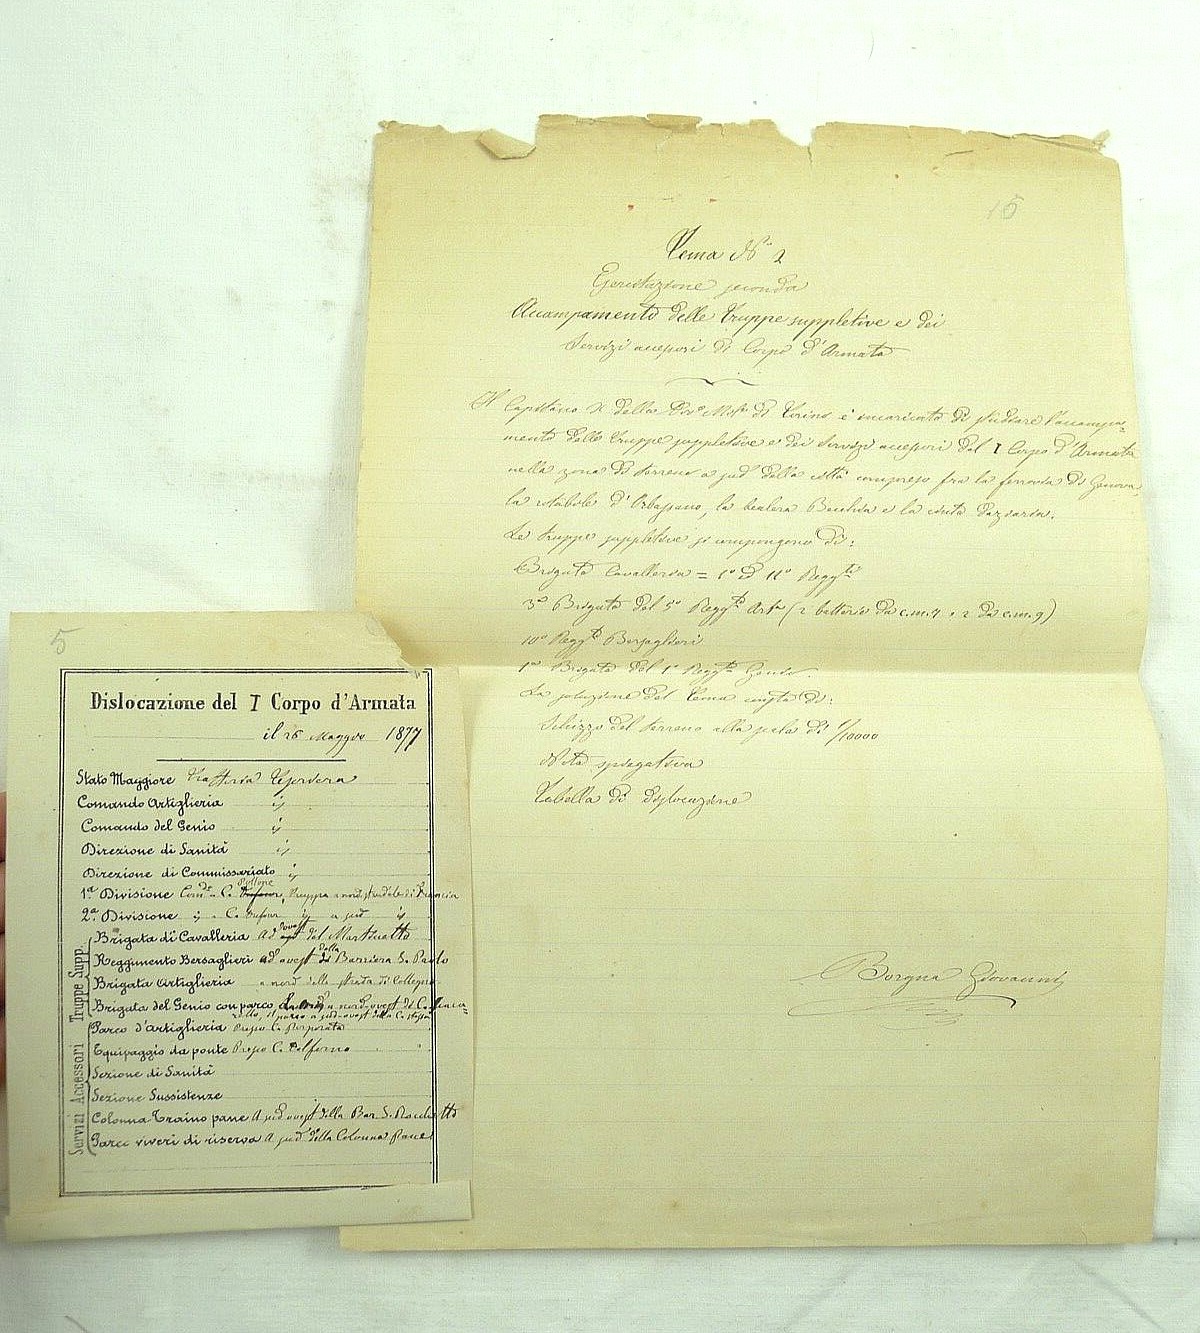 15
Tema N° 2
Esercitazione seconda
Accampamento delle Truppe suppletive e dei
Servizi accessori di Corpo d'Armata
Il Capitano X dello Stato Mag. di Torino è incaricato di studiare l'accampa-
mento delle Truppe suppletive e dei Servizi accessori del I Corpo d'Armata
nella zona di terreno a sud della città compreso fra la ferrovia di Genova,
la stradale d'Orbassano, la bealera Becchia e la cinta daziaria.
Le truppe suppletive si compongono di:
Brigata Cavalleria = 1° ed 11° Regg.ti
3a Brigata del 5° Regg.to Art.a (2 batterie da c.m. 7 e 2 da c.m. 9)
10° Regg.to Bersaglieri
1a Brigata del 1° Regg.to Genio.
La soluzione del Tema consta di:
Schizzo del terreno alla scala di 1/10000
Nota spiegativa
Tabella di dislocazione
Borgna Giovanni
5
Dislocazione del I Corpo d'Armata
il 26 Maggio 1877
Stato Maggiore Trattoria Tesoriera
Comando Artiglieria
Comando del Genio
Direzione di Sanità
Direzione di Commissariato
1a Divisione Com.do a C. Pellone, Truppa a nord stradale di Francia
2a Divisione C. Dufour a sud
Truppe Supp.
Brigata di Cavalleria Ad ovest del Martinetto
Reggimento Bersaglieri Ad ovest della Barriera S. Paolo
Brigata Artiglieria a nord della strada di Collegno
Brigata del Genio con parco a nord-ovest di
il parco a sud-ovest della C. stessa
Servizi Accessori
Parco d'Artiglieria Presso C. Porporata
Equipaggio da ponte Presso C.
Sezione di Sanità
Sezione Sussistenze
Colonna Traino pane A sud ovest della Bar. S.
Parco viveri di riserva A sud della Colonna Pane